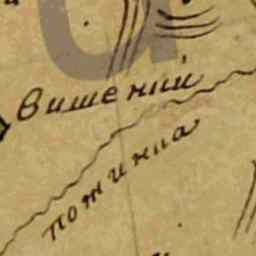 вишений
потина